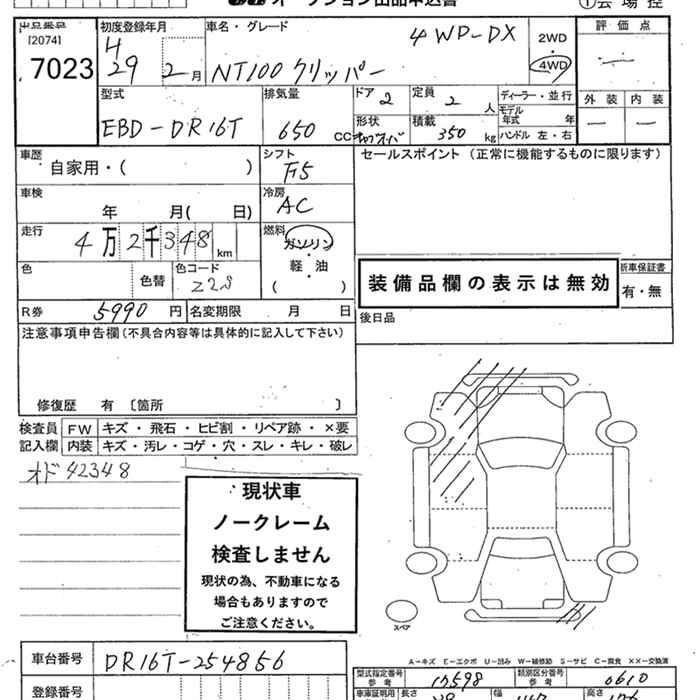 オークション出品申込書 ①会場控
出品番号
[2074]
7023
初度登録年月
H
29年 2月
車名・グレード
4WD-DX
NT100クリッパー
2WD
・
4WD
評価点
外装 内装
型式
EBD-DR16T
排気量
650 CC
ドア 2
定員 2人
ディーラー・並行
モデル年式 年
形状
積載 350kg
ハンドル 左・右
車歴
自家用・( )
シフト
F5
セールスポイント(正常に機能するものに限ります)
車検
年 月( 日)
冷房
AC
走行
4万2千348km
燃料
ガソリン
・
軽油
・
( )
色
色替
色コード
Z2S
装備品欄の表示は無効
新車保証書
有・無
R券 5990円
名変期限 月 日
後日品
注意事項申告欄(不具合内容等は具体的に記入して下さい)
修復歴 有 〔箇所 〕
検査員 FW キズ・飛石・ヒビ割・リペア跡・×要
記入欄 内装 キズ・汚レ・コゲ・穴・スレ・キレ・破レ
オド42348
現状車
ノークレーム
検査しません
現状の為、不動車になる
場合もありますので
ご注意ください。
スペア
A-キズ E-エクボ U-凹み W-補修跡 S-サビ C-腐食 XX-交換済
車台番号 DR16T-254856
型式指定番号
参考
17598
類別区分番号
参考
0610
登録番号
車庫証明用
長さ
幅
高さ